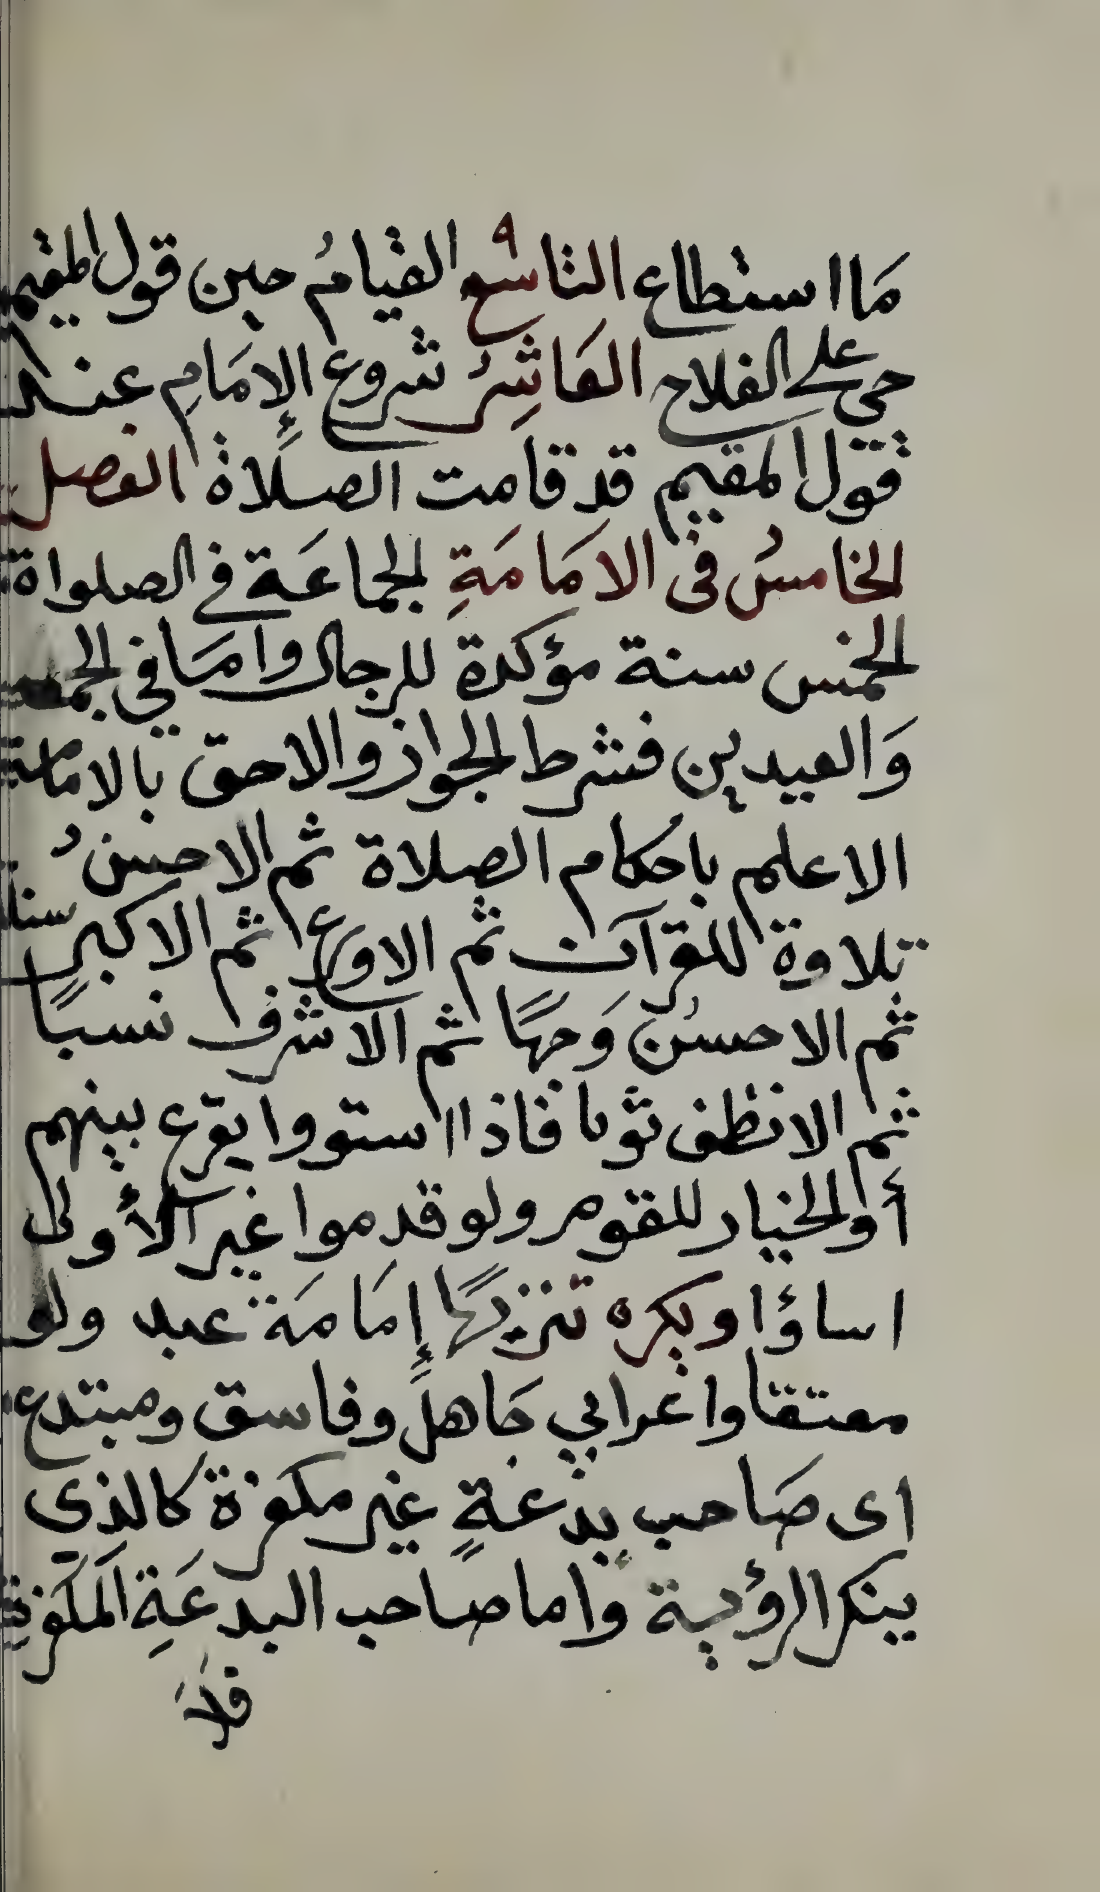 مَا استطاع التاسع ٩ القيامُ حين قول المقيم
حى على الفلاح العَاشِرُ شروع الإمَامِ عند
قول المقيم قد قامت الصلاة الفصل
الخامسُ في الامَامَةِ الجماعَة في الصلواة
الخمس سنة مؤكدة للرجال وامَا في الجمعة
وَالعيدين فشرط الجواز والاحق بالامامة
الاعلم باحكام الصلاة ثم الاحسنُ
تلاوة للقرآن ثم الاورع ثم الاكبر سنا
ثم الاحسنُ وَجهًا ثم الاشرف نسبًا
ثم الانظف ثوبا فاذا استووا يقرع بينهم
أو الخيار للقوم ولو قدموا غير الأولى
اساؤا ويكره تنزيهًا إمَامَة عبد ولو
معتقا واعرابي جَاهل وفاسق ومبتدع
اى صَاحب بدعةٍ غير مكفرة كالذي
ينكر الرؤية واما صاحب البدعَةِ المكفرة
فلا